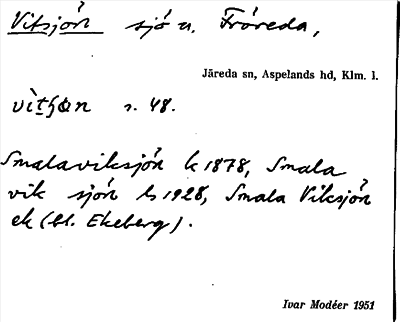 Vitsjön sjö n. Fröreda,
Järeda sn, Aspelands hd, Klm. l.
s. 48.
Smalaviksjön k 1878, Smala
vik sjön b 1928, Smala Viksjön
ek (bl. Ekeberg).
Ivar Modéer 1951